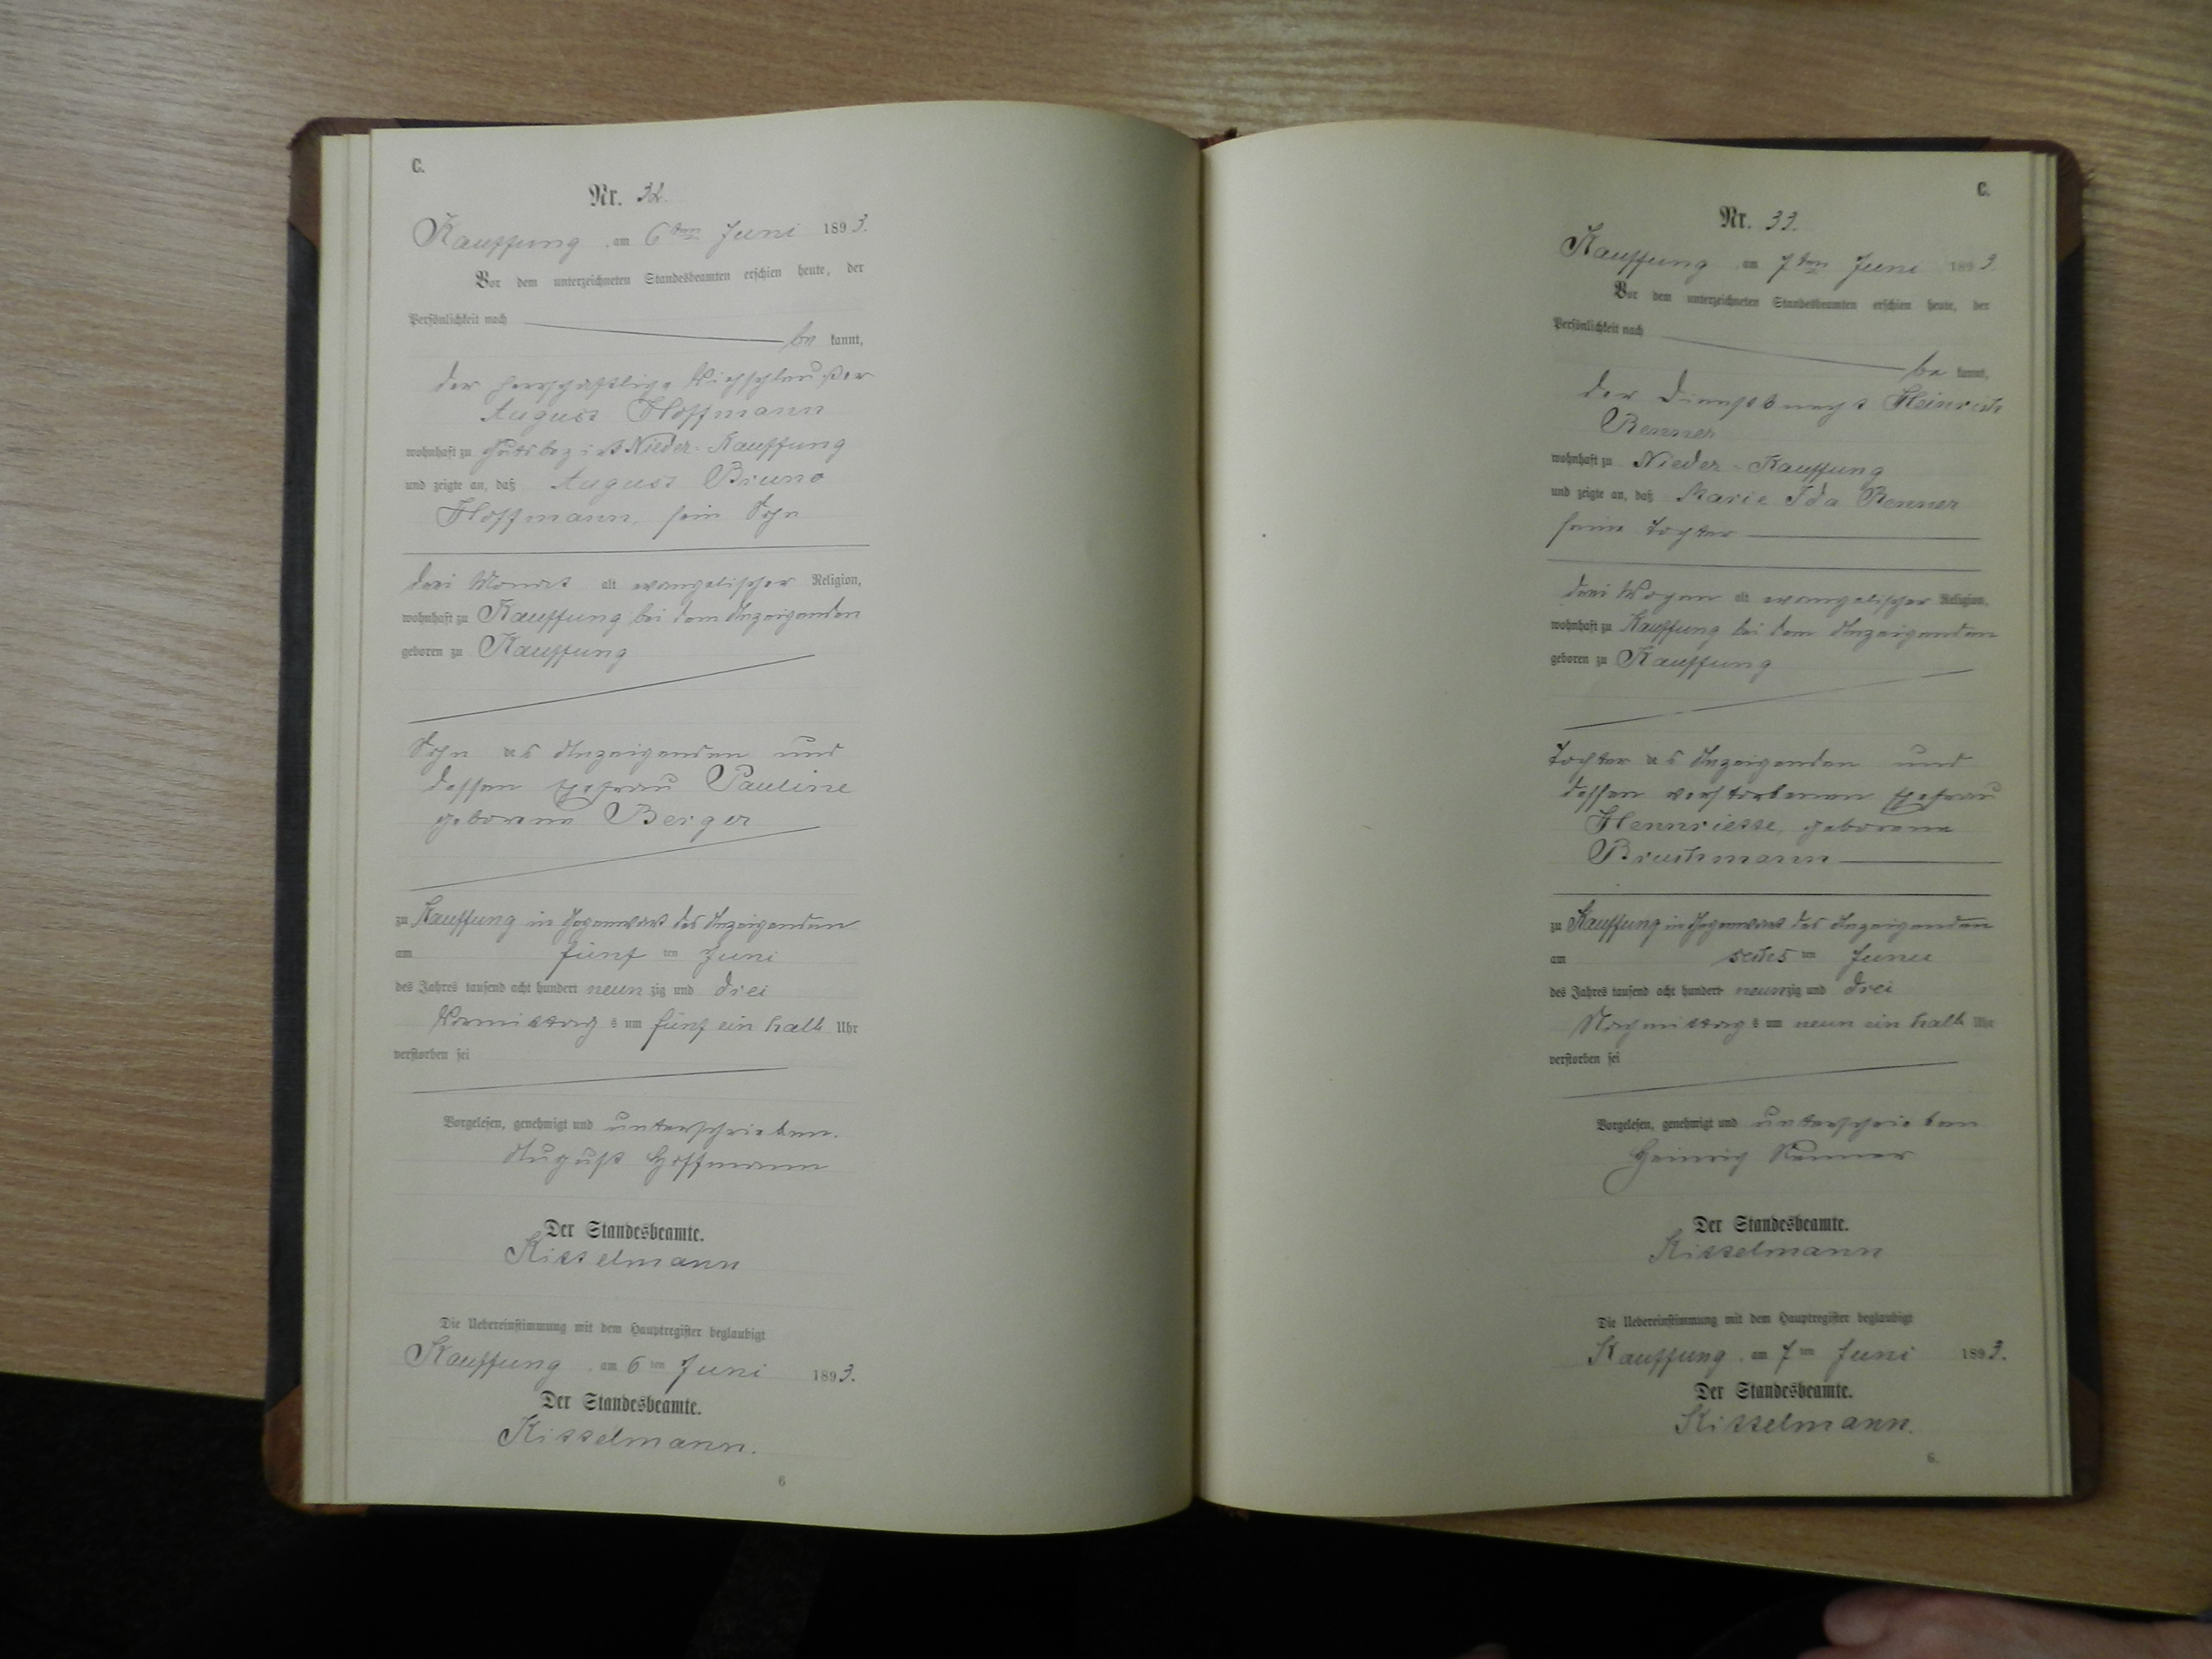 C.
Nr. 32.
Kauffung, am 6ten Juni 1893.
Vor dem unterzeichneten Standesbeamten erschien heute, der
Persönlichkeit nach
be kannt,
der herrschaftliche
August Hoffmann
wohnhaft zu Gutsbezirk Nieder-Kauffung
und zeigte an, daß August Bruno
Hoffmann, sein Sohn
drei Monat alt evangelischer Religion,
wohnhaft zu Kauffung bei dem Anzeigenden
geboren zu Kauffung
Sohn des Anzeigenden und
dessen Ehefrau Pauline
geborene Berger
zu Kauffung in Gegenwart des Anzeigenden
am fünf ten Juni
des Jahres tausend acht hundert neun zig und drei
Vormittag s um fünf ein halb Uhr
verstorben sei
Vorgelesen, genehmigt und unterschrieben.
August Hoffmann
Der Standesbeamte.
Kisselmann
Die Uebereinstimmung mit dem Hauptregister beglaubigt
Kauffung, am 6 ten Juni 1893.
Der Standesbeamte.
Kisselmann.
6
C.
Nr. 33.
Kauffung am 7ten Juni 1893
Vor dem unterzeichneten Standesbeamten erschien heute, der
Persönlichkeit nach
be kannt,
der Dienstknecht Heinrich
Renner
wohnhaft zu Nieder-Kauffung
und zeigte an, daß Marie Ida Renner
seine Tochter
drei Wochen alt evangelischer Religion,
wohnhaft zu Kauffung bei dem Anzeigenden
geboren zu Kauffung
Tochter des Anzeigenden und
dessen verstorbenen Ehefrau
Hennriette, geborene
Bruchmann
zu Kauffung in Gegenwart des Anzeigenden
am sechs ten Juni
des Jahres tausend acht hundert neunzig und drei
Nachmittag s um neun ein halb Uhr
verstorben sei
Vorgelesen, genehmigt und unterschrieben
Heinrich Renner
Der Standesbeamte.
Kisselmann
Die Uebereinstimmung mit dem Hauptregister beglaubigt
Kauffung, am 7 ten Juni 1893.
Der Standesbeamte.
Kisselmann.
6.